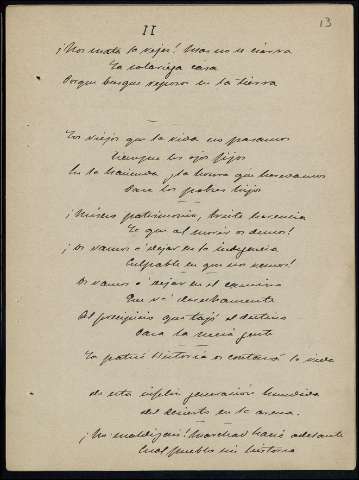 13
II
¡Nos mata la vejez! Mas no se cierra
La solariega casa
Porque busque reposo en la tierra
Los viejos que la vida no pasamos
Siempre los ojos fijos
En la hacienda y la honra que heredamos
Para los pobres hijos
¡Mísero patrimonio, triste herencia
Lo que al morir os demos!
¡Os vamos á dejar en la indigencia
Culpable en que nos vemos!
Os vamos á dejar en el camino
Que va derechamente
Al precipicio que tajó el destino
Para la necia gente
La patria Historia os contará la vida
de esta infeliz generación hundida
del desierto en la arena.
¡No maldigais! Marchad hacia adelante
Cual pueblo sin historia